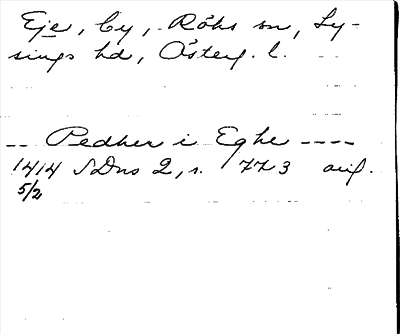 Eje, by, Röks sn, Ly-
sings hd, Österg. l.
-- Pedher i Eghe ----
1414 SDns 2, s. 773 orig.
5/2